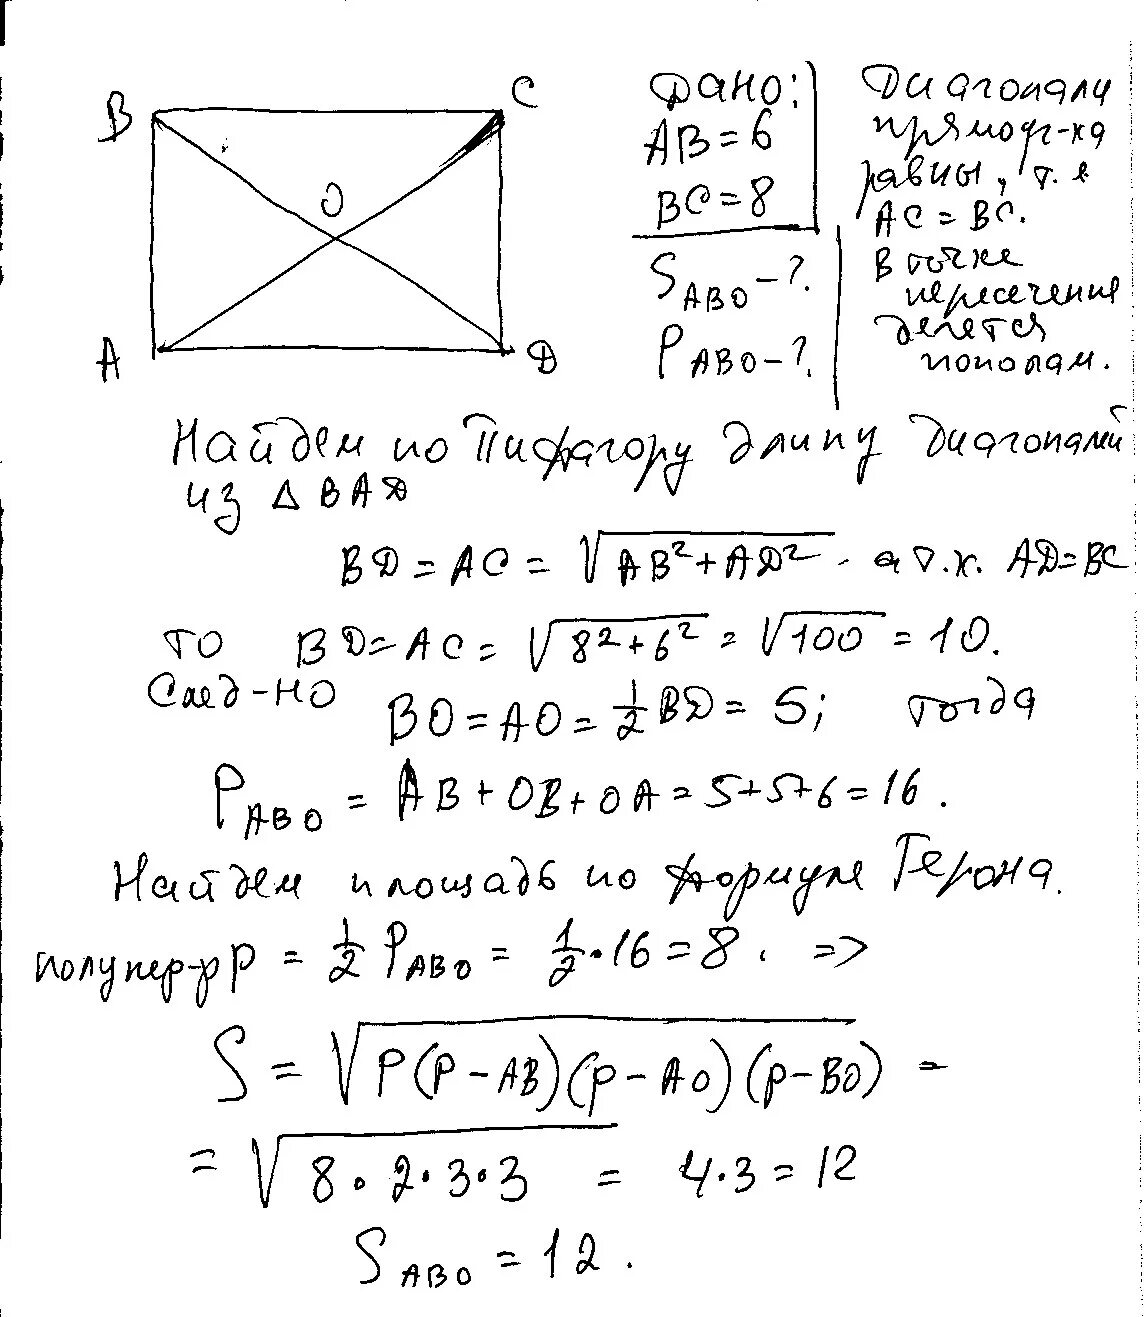 B
C
O
A
D
Дано:
AB = 6
BC = 8
S ABO - ?.
P ABO - ?.
Диагонали
прямоуг-ка
равны, т.е
AC = BC.
В точке
пересечения
делется
пополам.
Найдем по Пифагору длину диагоналей
из Δ BAD
BD = AC = √AB² + AD² - а т.к. AD = BC
то BD = AC = √8² + 6² = √100 = 10.
След-но
BO = AO = 1/2 BD = 5; тогда
P ABO = AB + OB + OA = 5 + 5 + 6 = 16.
Найдем площадь по формуле Герона.
полупер-р P = 1/2 P ABO = 1/2 · 16 = 8. =>
S = √P(P - AB)(p - AO)(p - BO) =
= √8 · 2 · 3 · 3 = 4 · 3 = 12
S ABO = 12.